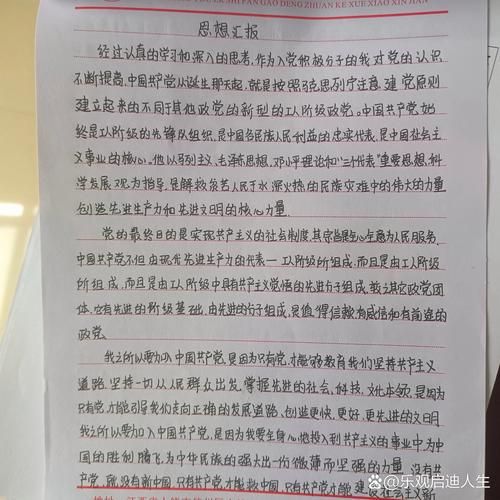 FAN GAO DENG ZHUAN KE XUE XIAO XIN JIAN
思想汇报
经过认真的学习和深入的思考，作为入党积极分子的我对党的认识
不断提高，中国共产党从诞生那天起，就是按照马克思列宁主义建党原则
建立起来的不同于其他政党的新型的工人阶级政党。中国共产党始
终是工人阶级的先锋队组织，是中国各民族人民利益的忠实代表，是中国社会主
义事业的核心。他以马列主义、毛泽东思想、邓小平理论和"三个代表"重要思想、科
学发展观为指导，是解救贫苦人民于水深火热的民族灾难中的伟大的力量
创造先进生产力和先进文明的核心力量.
党的最终目的是实现共产主义的社会制度，其宗旨是全心全意为人民服务.
中国共产党不但由现代先进生产力的代表——工人阶级所组成，而且是由工人阶级
所组成，而且是由工人阶级中具有共产主义觉悟的先进分子组成，较之其它政党团
体，它有先进的阶级基础，由先进的分子组成，是值得信赖有威信和有前途的
政党.
我之所以要加入中国共产党，是因为只有党，才能够教育我们坚持共产主义
道路，坚持一切从人民群众出发，掌握先进的社会、科技、文化本领，是因为
只有党，才能引导我们走向正确的发展道路，创造更快、更好、更先进的文明
我之所以要加入中国共产党，是因为我要全身心地投入到共产主义的事业中，为中
国的胜利腾飞，为中华民族的强大出一份微薄而坚强的力量 没有共
产党，就没有新中国，只有共产党，才能救中国，只有共产党，才能建设社会主义
百家号/乐观启迪人生